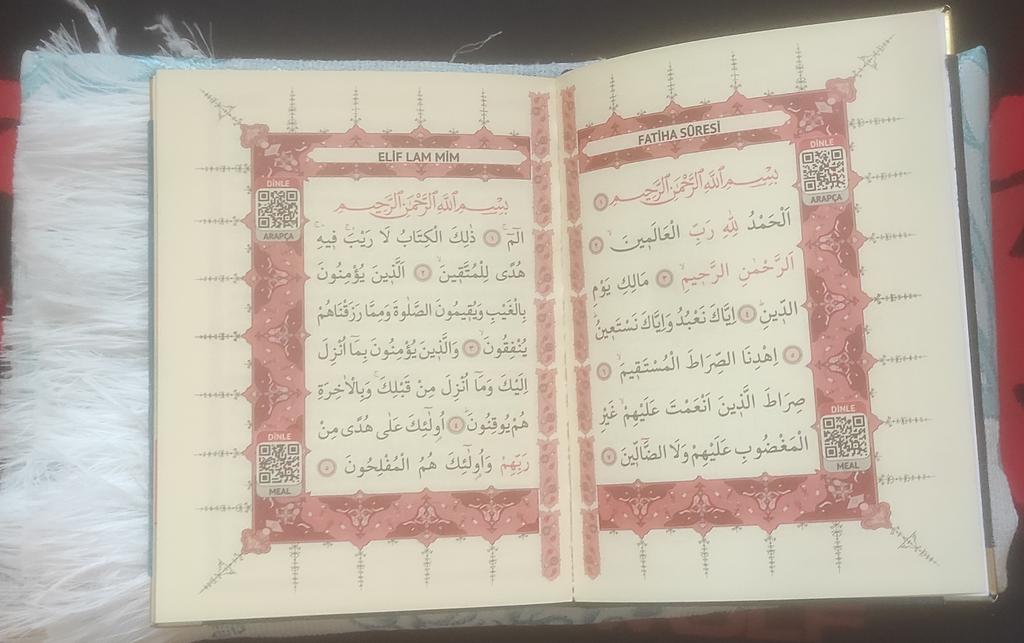 FATİHA SÛRESİ
DİNLE
ARAPÇA
بِسْمِ اللّٰهِ الرَّحْمٰنِ الرَّحِيمِ ﴿١﴾
اَلْحَمْدُ لِلّٰهِ رَبِّ الْعَالَمِينَۙ ﴿٢﴾
اَلرَّحْمٰنِ الرَّحِيمِۙ ﴿٣﴾ مَالِكِ يَوْمِ
الدِّينِۜ ﴿٤﴾ اِيَّاكَ نَعْبُدُ وَاِيَّاكَ نَسْتَعِينُۜ
﴿٥﴾ اِهْدِنَا الصِّرَاطَ الْمُسْتَقِيمَۙ ﴿٦﴾
صِرَاطَ الَّذِينَ اَنْعَمْتَ عَلَيْهِمْۙ غَيْرِ
الْمَغْضُوبِ عَلَيْهِمْ وَلَا الضَّٓالِّينَ ﴿٧﴾
DİNLE
MEAL
ELİF LAM MİM
DİNLE
ARAPÇA
بِسْمِ اللّٰهِ الرَّحْمٰنِ الرَّحِيمِ
الٓمٓۚ ﴿١﴾ ذٰلِكَ الْكِتَابُ لَا رَيْبَۚۛ فِيهِۚۛ
هُدًى لِلْمُتَّقِينَۙ ﴿٢﴾ اَلَّذِينَ يُؤْمِنُونَ
بِالْغَيْبِ وَيُقِيمُونَ الصَّلٰوةَ وَمِمَّا رَزَقْنَاهُمْ
يُنْفِقُونَۙ ﴿٣﴾ وَالَّذِينَ يُؤْمِنُونَ بِمَٓا اُنْزِلَ
اِلَيْكَ وَمَٓا اُنْزِلَ مِنْ قَبْلِكَۚ وَبِالْاٰخِرَةِ
هُمْ يُوقِنُونَۜ ﴿٤﴾ اُو۬لٰٓئِكَ عَلٰى هُدًى مِنْ
رَبِّهِمْ وَاُو۬لٰٓئِكَ هُمُ الْمُفْلِحُونَ ﴿٥﴾
DİNLE
MEAL